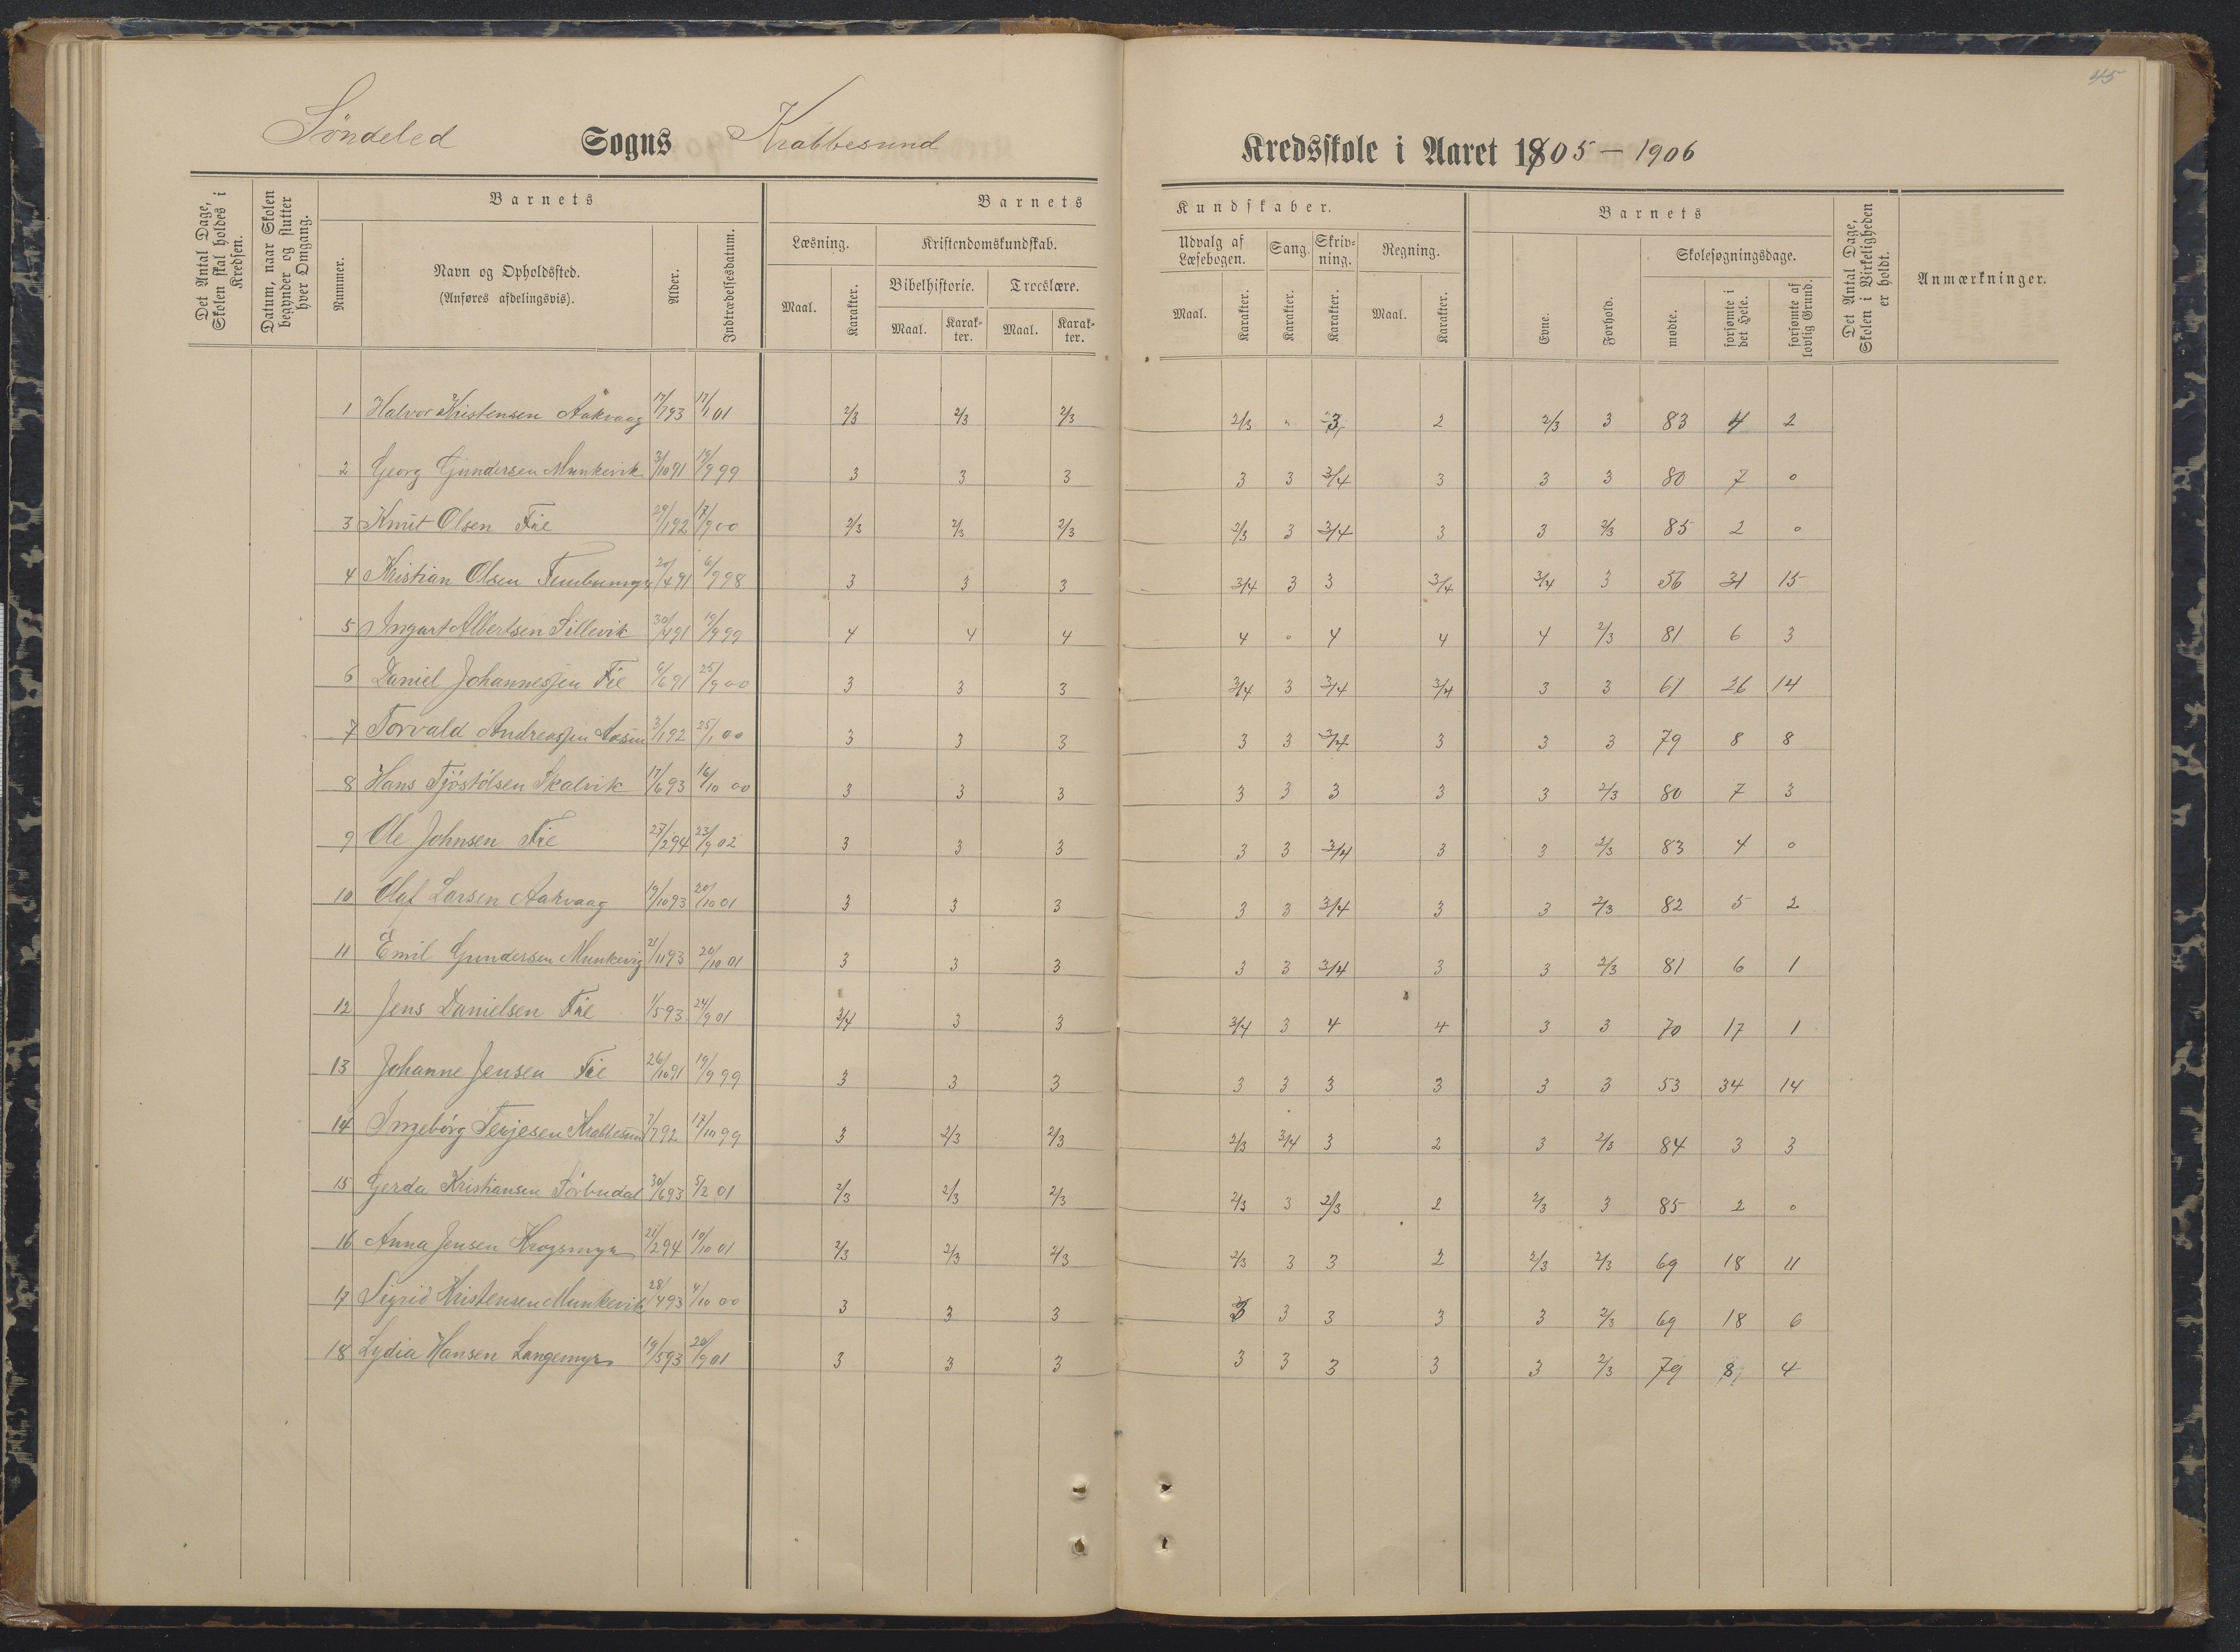 45
Söndeled Sogns Krabbesund Kredsskole i Aaret 1905 – 1906
Det Antal Dage, Skolen skal holdes i Kredsen.
Datum, naar Skolen begynder og slutter hver Omgang.
Barnets
Nummer.
Navn og Opholdssted.
(Anføres afdelingsvis).
Alder.
Indtrædelsesdatum.
Barnets Kundskaber.
Læsning.
Maal. Karakter.
Kristendomskundskab.
Bibelhistorie. Troeslære.
Maal. Karakter. Maal. Karakter.
Udvalg af Læsebogen. Sang. Skrivning. Regning.
Maal. Karakter. Karakter. Karakter. Maal. Karakter.
Barnets
Evne. Forhold.
Skolesøgningsdage.
mødte. forsømte i det Hele. forsømte af lovlig Grund.
Det Antal Dage, Skolen i Virkeligheden er holdt.
Anmærkninger.
1 Halvor Kristensen Aakvaag 17/7 93 17/1 01 2/3 2/3 2/3 2/3 " 3 2 2/3 3 83 4 2
2 Georg Gundersen Munkevik 3/10 91 19/9 99 3 3 3 3 3 3/4 3 3 3 80 7 0
3 Knut Olsen Fie 29/1 92 17/9 00 2/3 2/3 2/3 2/3 3 3/4 3 3 2/3 85 2 0
4 Kristian Olsen 20/4 91 6/9 98 3 3 3 3/4 3 3 3/4 3/4 3 56 31 15
5 Ingart Albertsen Sillevik 30/4 91 19/9 99 4 4 4 4 0 4 4 4 2/3 81 6 3
6 Daniel Johannesen Fie 6/6 91 25/9 00 3 3 3 3/4 3 3/4 3/4 3 3 61 26 14
7 Torvald Andreassen Aasen 3/1 92 25/1 00 3 3 3 3 3 3/4 3 3 3 79 8 8
8 Hans Tjöstölsen Skalvik 17/6 93 16/10 00 3 3 3 3 3 3 3 3 2/3 80 7 3
9 Ole Johnsen Fie 27/2 94 23/9 02 3 3 3 3 3 3/4 3 3 2/3 83 4 0
10 Olaf Larsen Aakvaag 19/10 93 20/10 01 3 3 3 3 3 3/4 3 3 2/3 82 5 2
11 Emil Gundersen Munkevig 21/11 93 20/10 01 3 3 3 3 3 3/4 3 3 2/3 81 6 1
12 Jens Danielsen Fie 1/5 93 24/9 01 3/4 3 3 3/4 3 4 4 3 3 70 17 1
13 Johanne Jensen Fie 26/10 91 19/9 99 3 3 3 3 3 3 3 3 3 53 34 14
14 Ingebörg Terjesen Krabbesund 7/7 92 17/10 99 3 2/3 2/3 2/3 3/4 3 2 3 2/3 84 3 3
15 Gerda Kristiansen Torbudal 30/6 93 5/2 01 2/3 2/3 2/3 2/3 3 2/3 2 2/3 3 85 2 0
16 Anna Jensen Krogsmyr 21/2 94 19/10 01 2/3 2/3 2/3 2/3 3 3 2 2/3 2/3 69 18 11
17 Sigrid Kristensen Munkevik 28/4 93 4/10 00 3 3 3 3 3 3 3 3 2/3 69 18 6
18 Lydia Hansen Langemyr 19/5 93 20/9 01 3 3 3 3 3 3 3 3 2/3 79 8 4